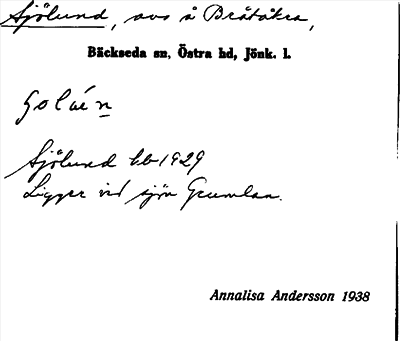 Sjölund, avs å Bråtåkra,
Bäckseda sn, Östra hd, Jönk. l.
Sjölund bb 1929
Ligger vid sjön Grumlan.
Annalisa Andersson 1938